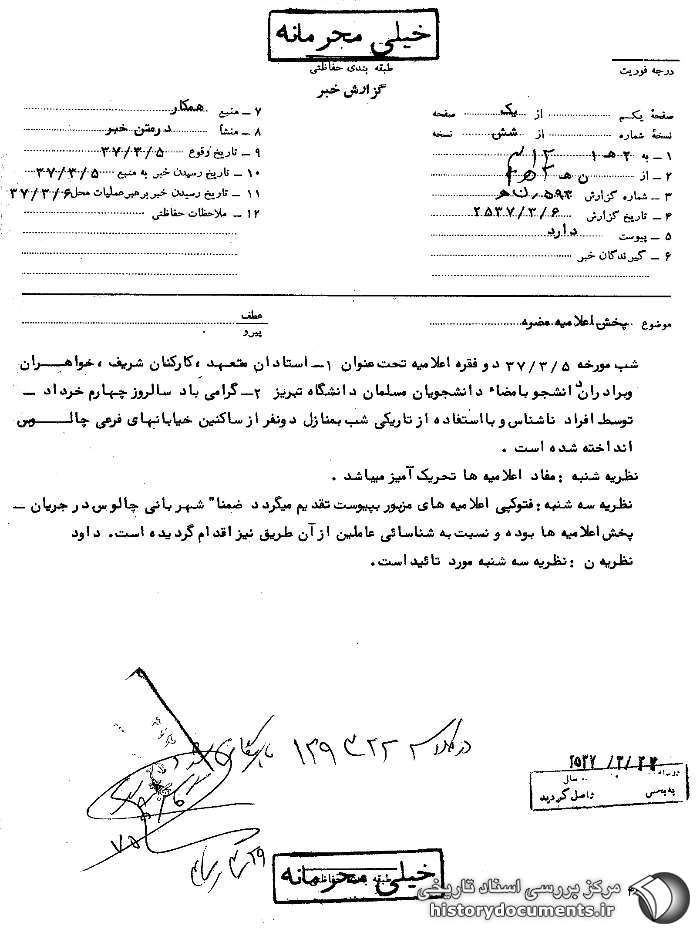 خیلی محرمانه
طبقه بندی حفاظتی
گزارش خبر
درجه فوریت
صفحهٔ یکم از یک صفحه
نسخهٔ شماره از شش نسخه
۱ ــ به ۳۱۲
۲ ــ از
۳ ــ شماره گزارش
۴ ــ تاریخ گزارش ۲۵۳۷/۳/۶
۵ ــ پیوست دارد
۶ ــ گیرندگان خبر
۷ ــ منبع همکار
۸ ــ منشأ درمتن خبر
۹ ــ تاریخ وقوع ۳۷/۳/۵
۱۰ ــ تاریخ رسیدن خبر به منبع ۳۷/۳/۵
۱۱ ــ تاریخ رسیدن خبر برهبر عملیات محل ۳۷/۳/۶
۱۲ ــ ملاحظات حفاظتی
موضوع پخش اعلامیه مضره
عطف
پیرو
شب مورخه ۳۷/۳/۵ دو فقره اعلامیه تحت عنوان ۱ــ استادان متعهد ، کارکنان شریف ، خواهــران
وبرادران دانشجو بامضاء دانشجویان مسلمان دانشگاه تبریز ۲ــ گرامی باد سالروز چهارم خرداد ــ
توسط افراد ناشناس و بااستفاده از تاریکی شب بمنازل دونفر از ساکنین خیابانهای فرعی چالـــوس
انداخته شده است .
نظریه شنبه : مفاد اعلامیه ها تحریک آمیز میباشد .
نظریه سه شنبه : فتوکپی اعلامیه های مزبور بپیوست تقدیم میگردد ضمنا" شهربانی چالوس در جریان ــ
پخش اعلامیه ها بوده و نسبت به شناسائی عاملین از آن طریق نیز اقدام گردیده است. داود
نظریه ن : نظریه سه شنبه مورد تائید است .
در کلاسه ۱۲۹۳۲۲
۲۵۳۷/۳/۲۲
واصل گردید
خیلی محرمانه
مرکز بررسی اسناد تاریخی
historydocuments.ir